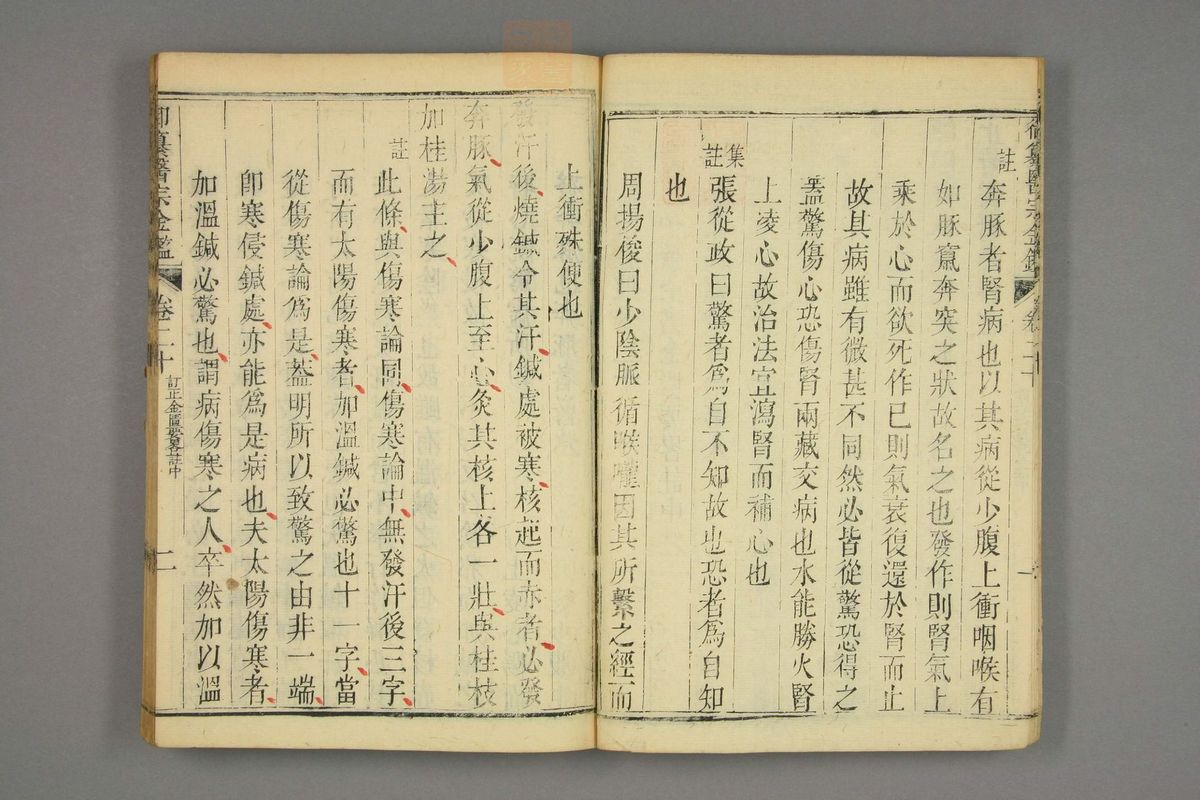 註
奔豚者腎病也以其病從少腹上衝咽喉有
如豚竄奔突之狀故名之也發作則腎氣上
乘於心而欲死作已則氣衰復還於腎而止
故其病雖有微甚不同然必皆從驚恐得之
葢驚傷心恐傷腎兩藏交病也水能勝火腎
上凌心故治法宜瀉腎而補心也
集註
張從政曰驚者爲自不知故也恐者爲自知
也
周揚俊曰少陰脈循喉嚨因其所繫之經而
上衝殊便也
發汗後燒鍼令其汗鍼處被寒核起而赤者必發
奔豚氣從少腹上至心灸其核上各一壯與桂枝
加桂湯主之
註
此條與傷寒論同傷寒論中無發汗後三字
而有太陽傷寒者加溫鍼必驚也十一字當
從傷寒論爲是葢明所以致驚之由非一端
卽寒侵鍼處亦能爲是病也夫太陽傷寒者
加溫鍼必驚也謂病傷寒之人卒然加以溫
御纂醫宗金鑑
卷二十
訂正金匱要畧註中
二